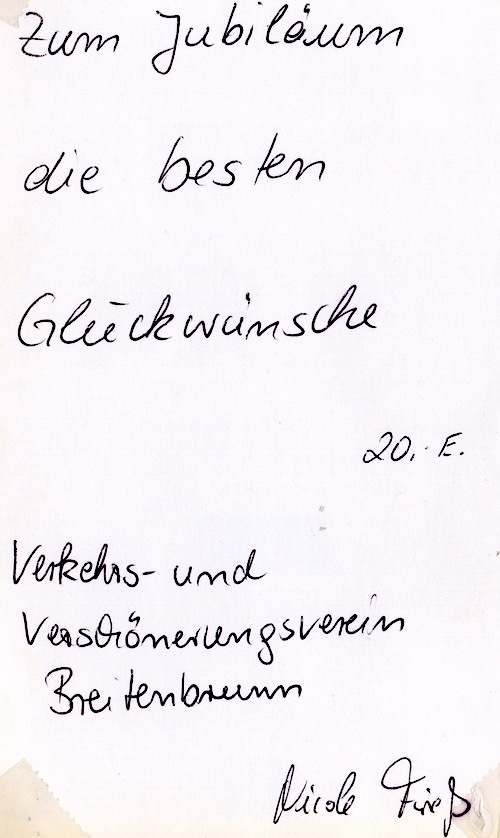 Zum Jubiläum
die besten
Glückwünsche
20,- E.
Verkehrs- und
Verschönerungsverein
Breitenbrunn
Nicole